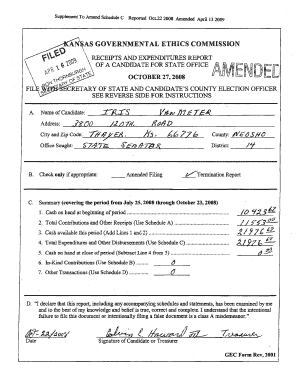 Supplement To Amend Schedule C Reported Oct.22 2008 Amended April 13 2009
KANSAS GOVERNMENTAL ETHICS COMMISSION
FILED
APR 16 2009
RON THORNBURGH
SECRETARY OF STATE
RECEIPTS AND EXPENDITURES REPORT
OF A CANDIDATE FOR STATE OFFICE
AMENDED
OCTOBER 27, 2008
FILE WITH SECRETARY OF STATE AND CANDIDATE'S COUNTY ELECTION OFFICER
SEE REVERSE SIDE FOR INSTRUCTIONS
A. Name of Candidate: IRIS VANMETER
Address: 3800 120TH. ROAD
City and Zip Code: THAYER Ks. 66776 County: NEOSHO
Office Sought: STATE SENATOR District: 14
B. Check only if appropriate: Amended Filing ✓ Termination Report
C. Summary (covering the period from July 25, 2008 through October 23, 2008)
1. Cash on hand at beginning of period 10423 62
2. Total Contributions and Other Receipts (Use Schedule A) 11553 00
3. Cash available this period (Add Lines 1 and 2) 21976 62
4. Total Expenditures and Other Disbursements (Use Schedule C) 21976 62
5. Cash on hand at close of period (Subtract Line 4 from 3) 0 00
6. In-Kind Contributions (Use Schedule B) 0
7. Other Transactions (Use Schedule D) 0
D. "I declare that this report, including any accompanying schedules and statements, has been examined by me
and to the best of my knowledge and belief is true, correct and complete. I understand that the intentional
failure to file this document or intentionally filing a false document is a class A misdemeanor."
Calvin L Haward III Treasurer
Date Signature of Candidate or Treasurer
GEC Form Rev, 2001